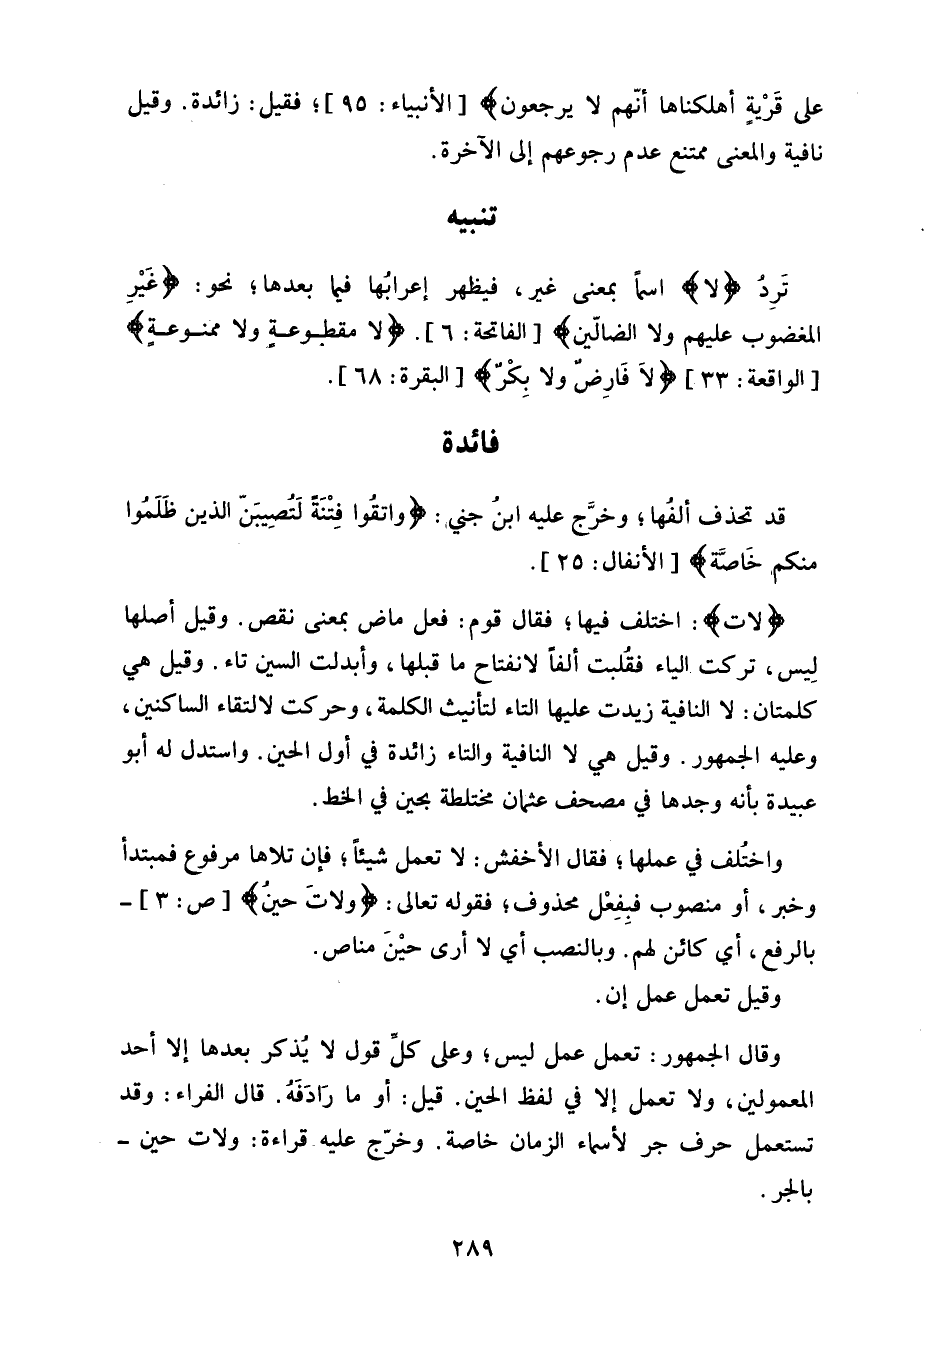 على قَرْيةٍ أهلكناها أنّهم لا يرجعون﴾ [الأنبياء: ٩٥]؛ فقيل: زائدة. وقيل
نافية والمعنى ممتنع عدم رجوعهم إلى الآخرة.
تنبيه
تَرِدُ ﴿لا﴾ اسماً بمعنى غير، فيظهر إعرابُها فيما بعدها؛ نحو: ﴿غَيْرِ
المغضوب عليهم ولا الضالّين﴾ [الفاتحة: ٦]. ﴿لا مقطوعـةٍ ولا ممنـوعـةٍ﴾
[الواقعة: ٣٣] ﴿لاَ فَارِضٌ ولا بِكْرٌ﴾ [البقرة: ٦٨].
فائدة
قد تحذف ألفُها؛ وخرَّج عليه ابنُ جني: ﴿واتقُوا فِتْنَةً لَتُصِيبَنّ الذين ظَلَمُوا
منكم خَاصَّة﴾ [الأنفال: ٢٥].
﴿لات﴾: اختلف فيها؛ فقال قوم: فعل ماض بمعنى نقص. وقيل أصلها
لِيس، تركت الياء فقُلبت ألفاً لانفتاح ما قبلها، وأبدلت السين تاء. وقيل هي
كلمتان: لا النافية زيدت عليها التاء لتأنيث الكلمة، وحركت لالتقاء الساكنين،
وعليه الجمهور. وقيل هي لا النافية والتاء زائدة في أول الحين. واستدل له أبو
عبيدة بأنه وجدها في مصحف عثمان مختلطة بحين في الخط.
واختُلف في عملها؛ فقال الأخفش: لا تعمل شيئاً؛ فإن تلاها مرفوع فمبتدأ
وخبر، أو منصوب فبِفِعْل محذوف؛ فقوله تعالى: ﴿ولاتَ حينُ﴾ [ص: ٣] –
بالرفع، أي كائن لهم. وبالنصب أي لا أرى حيْنَ مناص.
وقيل تعمل عمل إن.
وقال الجمهور: تعمل عمل ليس؛ وعلى كلِّ قول لا يُذكر بعدها إلا أحد
المعمولين، ولا تعمل إلا في لفظ الحين. قيل: أو ما رَادَفَهُ. قال الفراء: وقد
تستعمل حرف جر لأسماء الزمان خاصة. وخرّج عليه قراءة: ولات حين –
بالجر.
٢٨٩